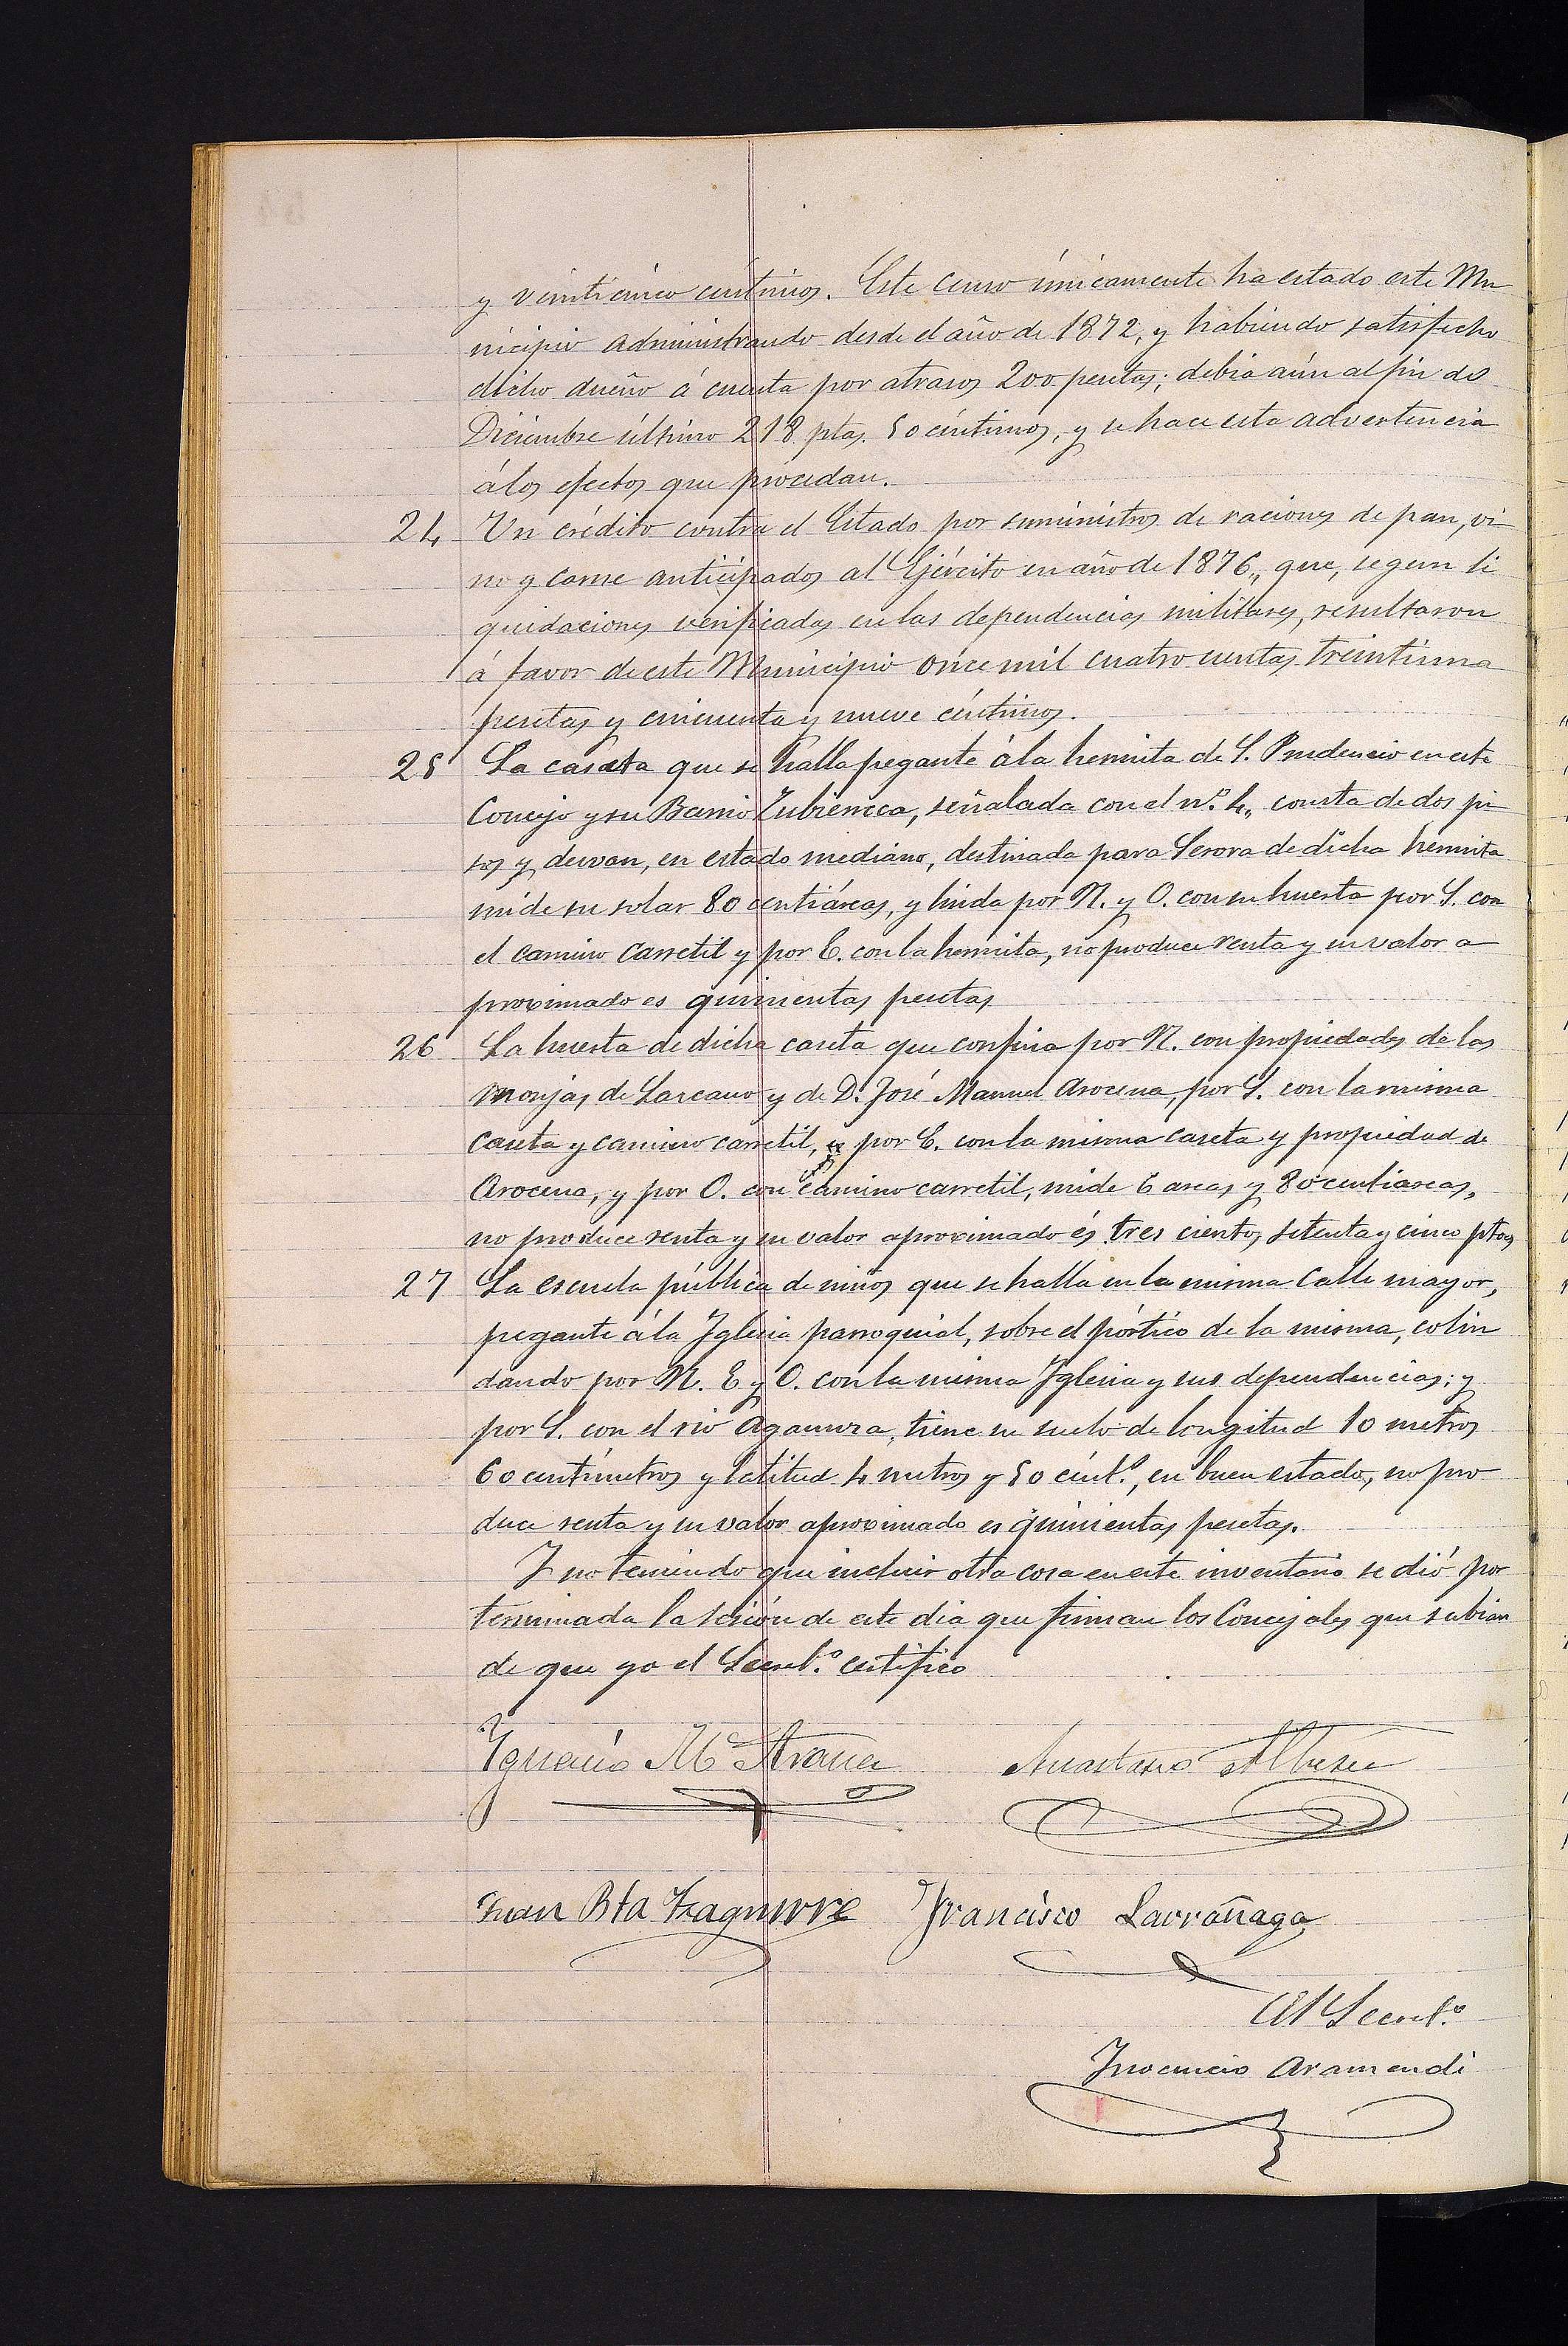 y veinticinco céntimos. Este censo únicamente ha estado este Mu
nicipio administrando desde el año de 1872, y habiendo satisfecho
dicho dueño á cuenta por atrasos 200 pesetas; debia aún al fin de
Diciembre último 218 ptas. 50 céntimos, y se hace esta advertencia
á los efectos que procedan.
24 Un crédito contra el Estado por suministros de raciones de pan, vi
no y carne anticipados al Ejército en año de 1876,, que, segun li
quidaciones verificadas en las dependencias militares, resultaron
á favor de este Municipio once mil cuatro cientas treintiuna
pesetas y cincuenta y nueve céntimos.
25 La caseta que se halla pegante á la hermita de S. Prudencio en este
Concejo y su Barrio Zubierreca, señalada con el nº. 4,, consta de dos pi
sos y desvan, en estado mediano, destinada para Serora de dicha hermita
mide su solar 80 centiáreas, y linda por N. y O. con su huerta por S. con
el camino carretil y por E. con la hermita, no produce renta y su valor a
proximado es quinientas pesetas
26 La huerta de dicha caseta que confina por N. con propiedades de las
Monjas de Lazcano y de D. José Manuel Arocena, por S. con la misma
caseta y camino carretil, por E. con la misma caseta y propiedad de
Arocena, y por O. con camino carretil, mide 6 areas y 80 centiareas,
no produce renta y su valor aproximado és tres cientos setenta y cinco ptas
27 La escuela pública de niños que se halla en la misma Calle mayor,
pegante á la Iglesia parroquial, sobre el pórtico de la misma, colin
dando por N. E y O. con la misma Iglesia y sus dependencias; y
por S. con el rio Agaunza, tiene su suelo de longitud 10 metros
60 centímetros y latitud 4 metros y 50 cént.s, en buen estado, no pro
duce renta y su valor aproximado es quinientas pesetas.
Y no teniendo que incluir otra cosa en este inventario se dió por
terminada la sesión de este dia que firman los Concejales que sabian
de que yo el Secret.º certifico
Ignacio Mª Arana Anastasio Albisu
Juan Bta Izaguirre Francisco Larrañaga
El Secret.º
Inocencio Aramendi